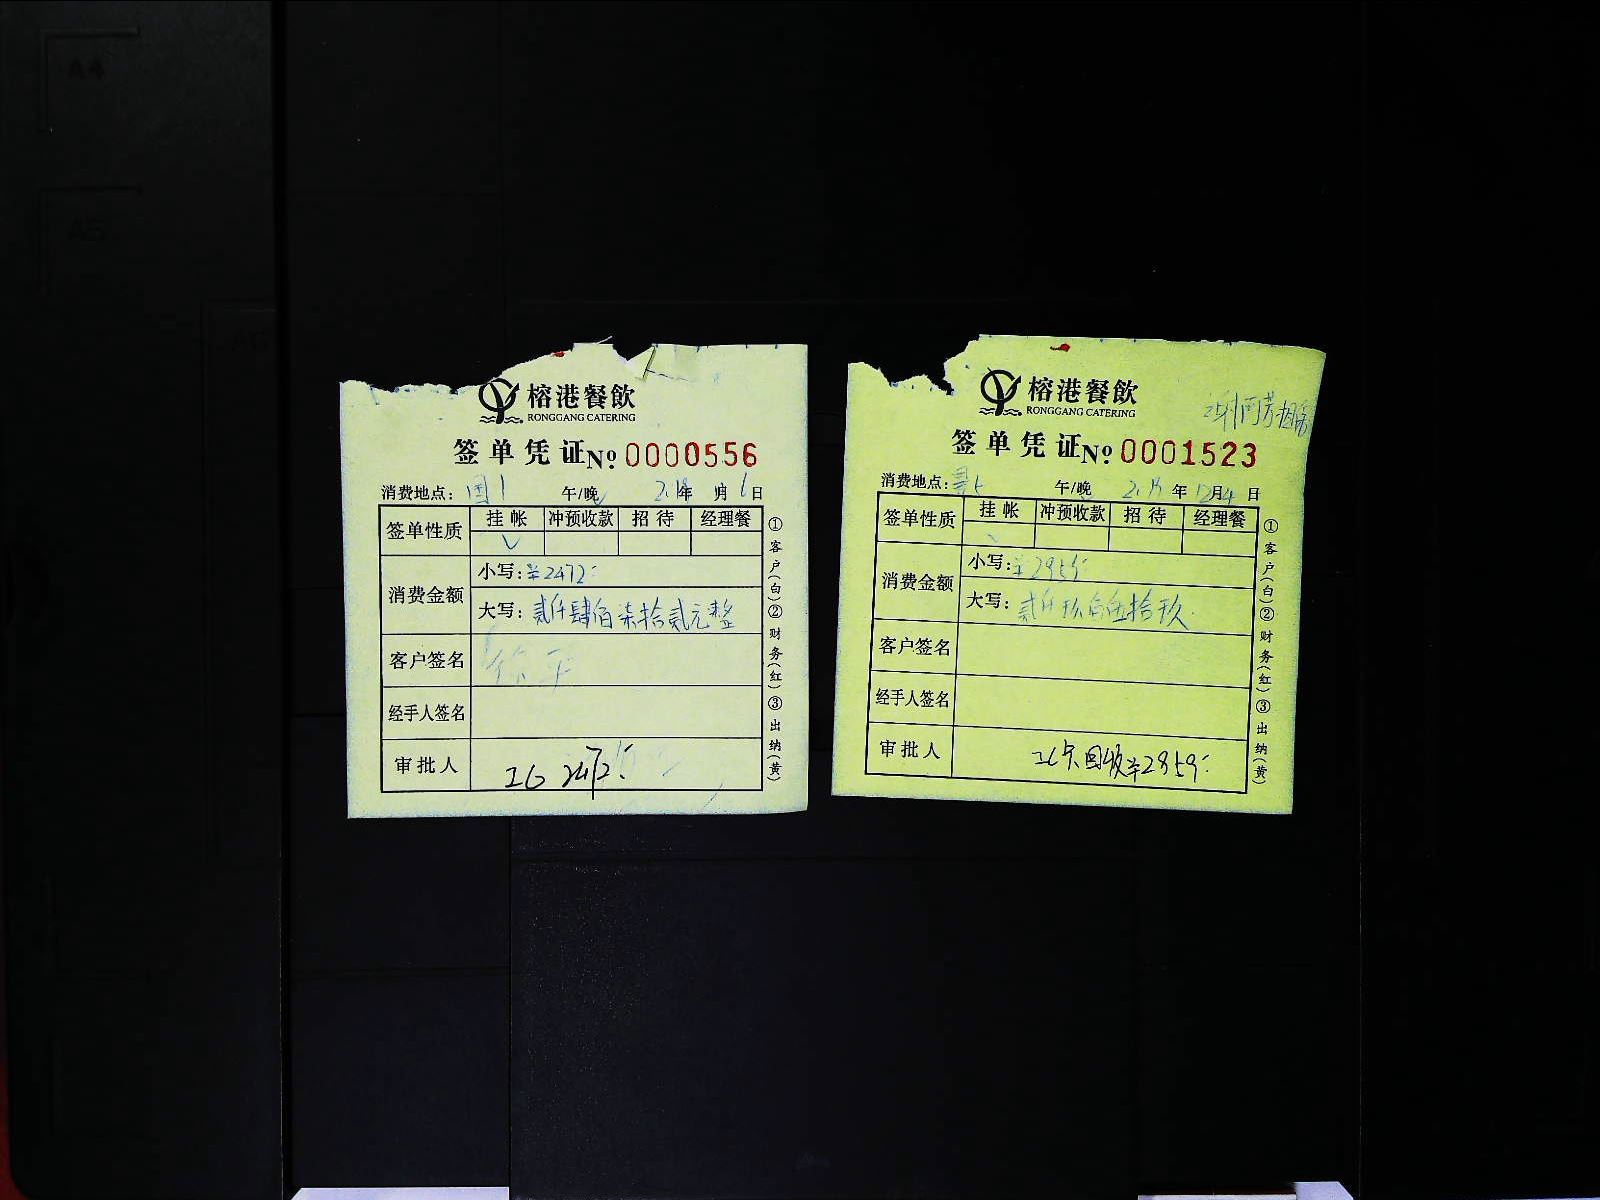 A4
A5
A6
榕港餐飲
RONGGANG CATERING
签单凭证 No. 0000556
消费地点: 午/晚 年 月 日
签单性质 挂帐 冲预收款 招待 经理餐
消费金额
小写: ¥2472
大写: 贰仟肆佰柒拾贰元整
客户签名
经手人签名
审批人 2472
①客户(白)②财务(红)③出纳(黄)
榕港餐飲
RONGGANG CATERING
签单凭证 No. 0001523
消费地点: 午/晚 年12月4日
签单性质 挂帐 冲预收款 招待 经理餐
消费金额
小写: ¥2959
大写: 贰仟玖佰伍拾玖
客户签名
经手人签名
审批人 ¥2959
①客户(白)②财务(红)③出纳(黄)